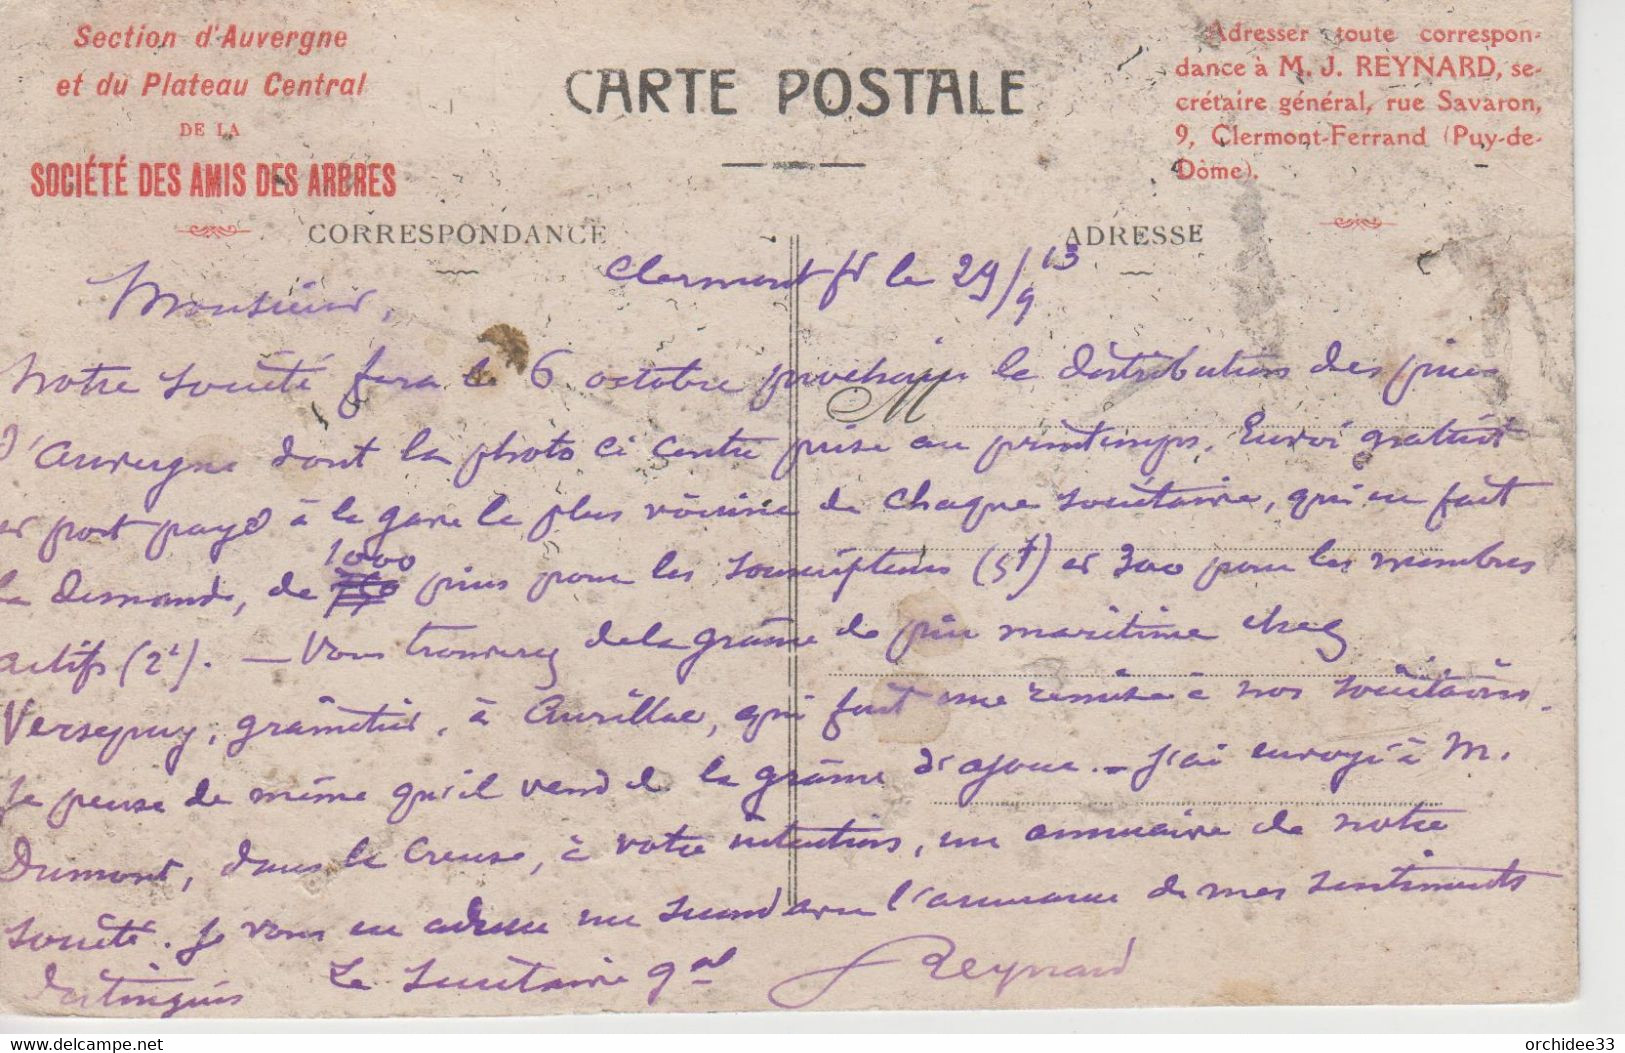 Section d'Auvergne
et du Plateau Central
DE LA
SOCIÉTÉ DES AMIS DES ARBRES
CARTE POSTALE
Adresser toute correspon-
dance à M. J. REYNARD, se-
crétaire général, rue Savaron,
9, Clermont-Ferrand (Puy-de-
Dôme).
CORRESPONDANCE
ADRESSE
Clermont fd le 29/9 13
Monsieur,
M
Notre société fera le 6 octobre prochain la distribution des pins
d'Auvergne dont la photo ci contre prise au printemps. Envoi gratuit
et port payé à la gare la plus voisine de chaque sociétaire, qui en fait
la demande, de 1000 pins pour les souscripteurs (5f) et 300 pour les membres
actifs (2f). — Vous trouverez de la graine de pin maritime chez
Versepuy, grainetier, à Aurillac, qui fait une remise à nos sociétaires.
Je pense de même qu'il vend de la graine d'ajonc. — J'ai envoyé à M.
Dumont, dans la Creuse, à votre intention, un annuaire de notre
société. Je vous en adresse un second avec l'assurance de mes sentiments
distingués
Le Secrétaire gal
J Reynard
orchidee33